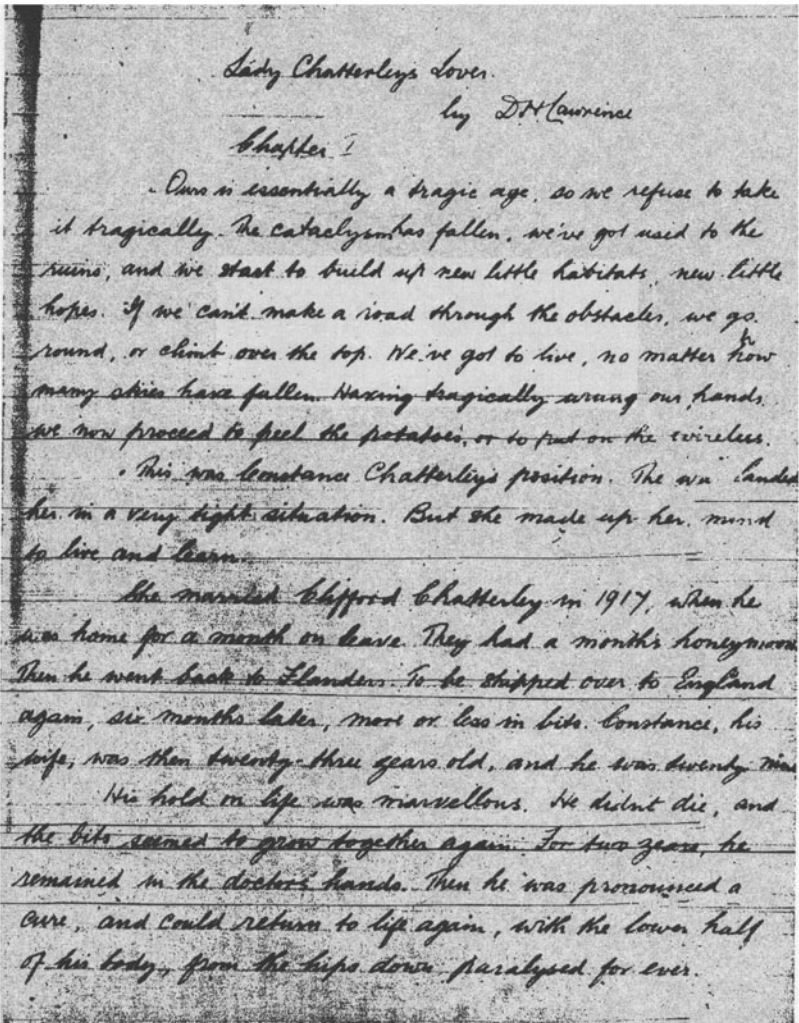 Lady Chatterleys Lover.
by D H Lawrence
Chapter I
Ours is essentially a tragic age, so we refuse to take
it tragically. The cataclysm has fallen, we've got used to the
ruins, and we start to build up new little habitats, new little
hopes. If we can't make a road through the obstacles, we go
round, or climb over the top. We've got to live, no matter how
many skies have fallen. Having tragically wrung our hands,
we now proceed to peel the potatoes, or to put on the wireless.
This was Constance Chatterley's position. The war landed
her in a very tight situation. But she made up her mind
to live and learn.
She married Clifford Chatterley in 1917, when he
was home for a month on leave. They had a month's honeymoon.
Then he went back to Flanders. To be shipped over to England
again, six months later, more or less in bits. Constance, his
wife, was then twenty-three years old, and he was twenty nine
His hold on life was marvellous. He didn't die, and
the bits seemed to grow together again. For two years, he
remained in the doctors' hands. Then he was pronounced a
cure, and could return to life again, with the lower half
of his body, from the hips down paralysed for ever.